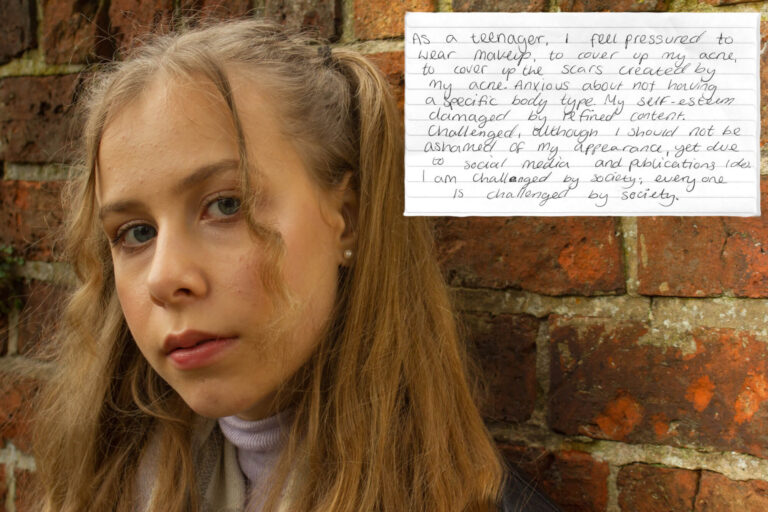 As a teenager, I feel pressured to
wear makeup, to cover up my acne,
to cover up the scars created by
my acne. Anxious about not having
a specific body type. My self-esteem
damaged by refined content.
Challenged, although I should not be
ashamed of my appearance, yet due
to social media and publications I do.
I am challenged by society; everyone
is challenged by society.